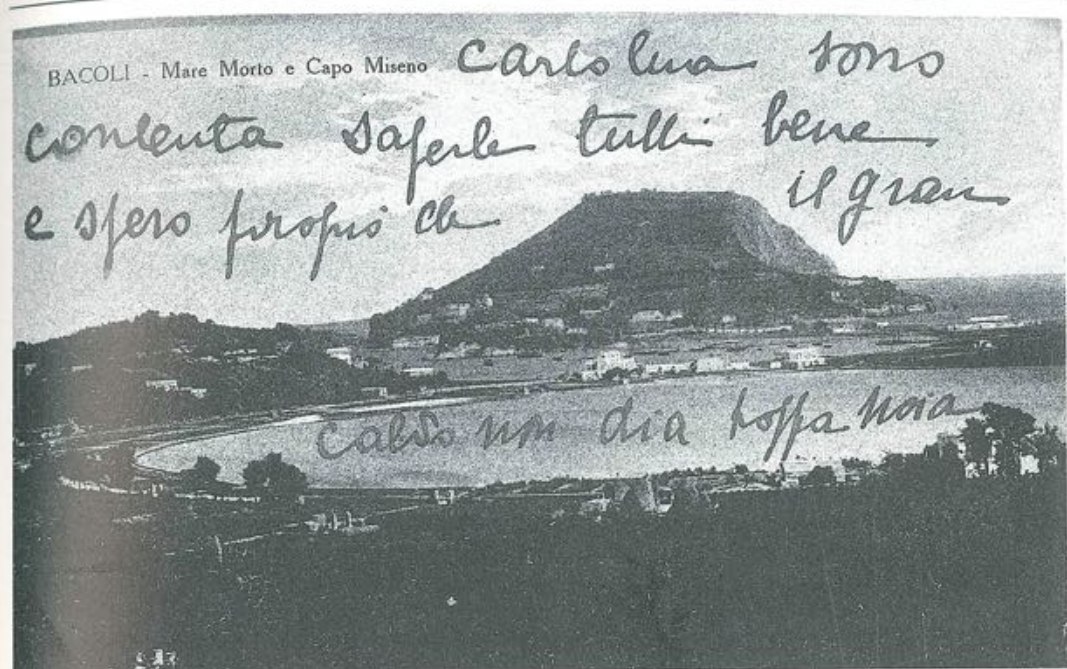 BACOLI - Mare Morto e Capo Miseno
Cartolina sono
contenta saperle tutti bene
e spero propio che il gran
caldo non dia troppa noia